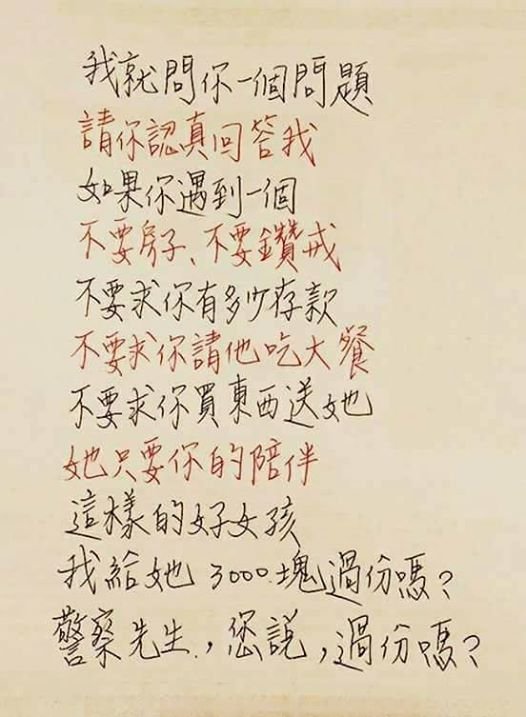 我就問你一個問題
請你認真回答我
如果你遇到一個
不要房子、不要鑽戒
不要求你有多少存款
不要求你請他吃大餐
不要求你買東西送她
她只要你的陪伴
這樣的好女孩
我給她3000塊過份嗎？
警察先生，您說，過份嗎？